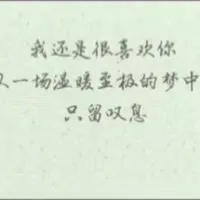 我还是很喜欢你
一场温暖至极的梦中
只留叹息